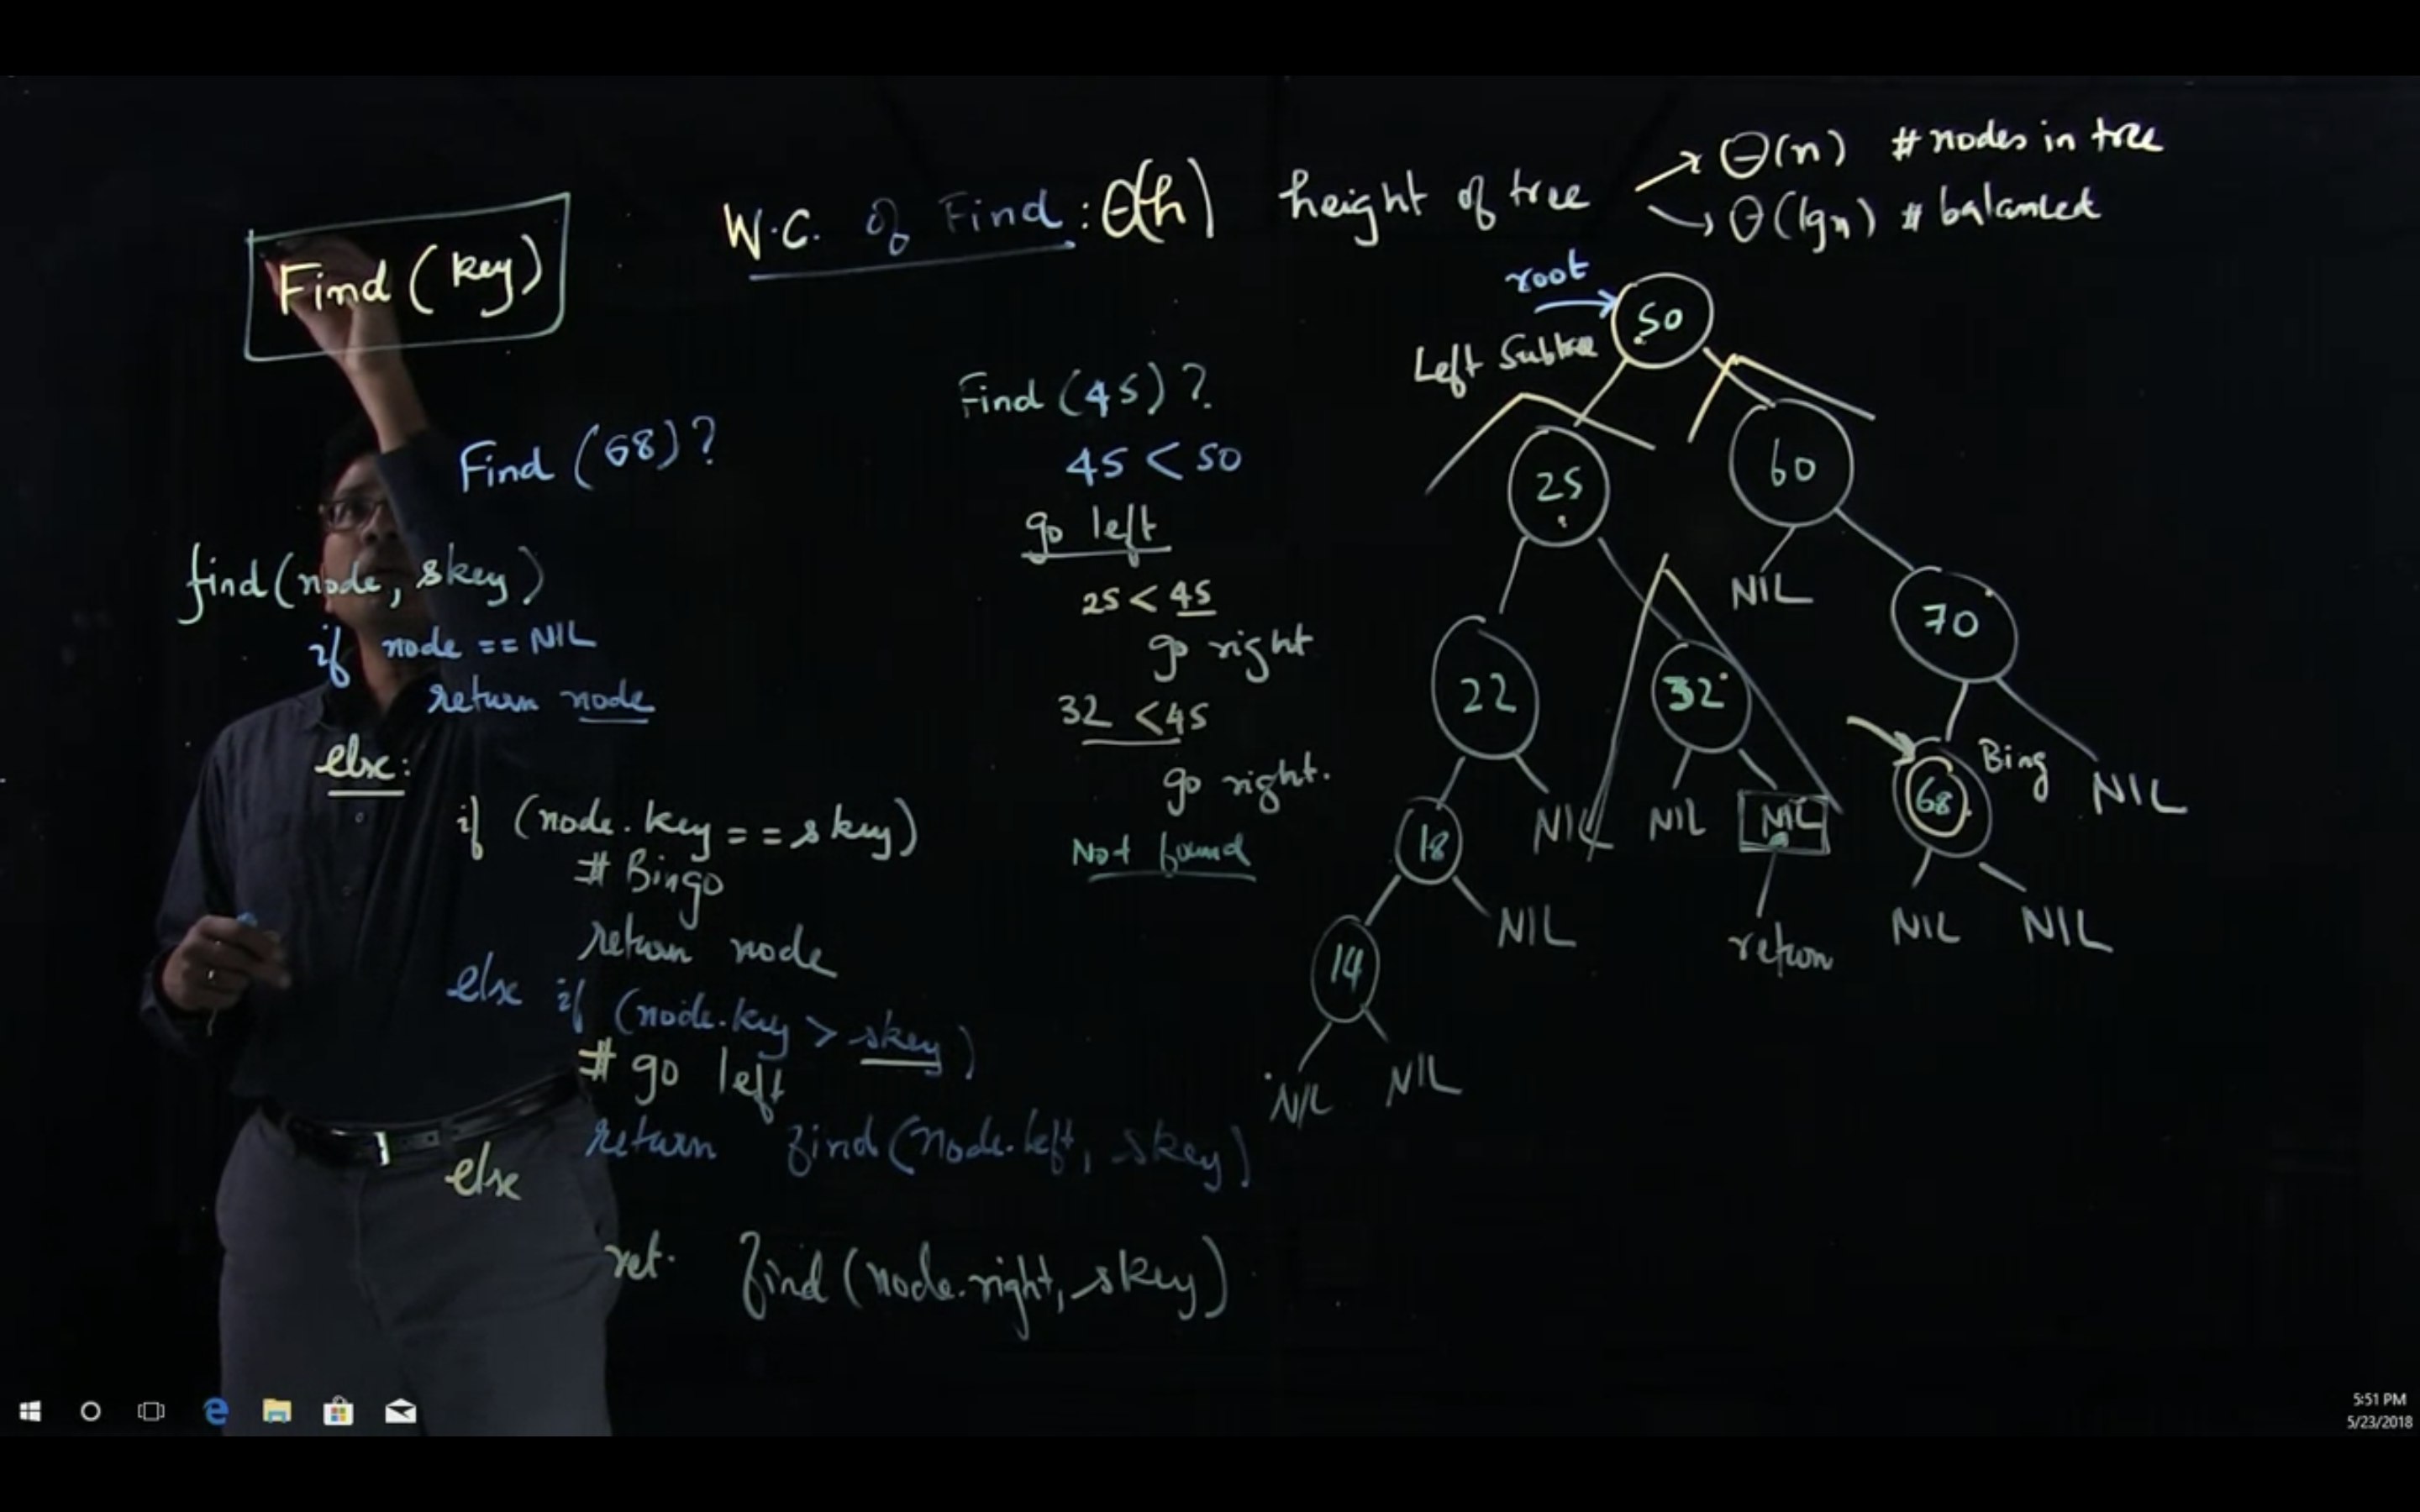 W.C. of Find : Θ(h) height of tree
Θ(n) # nodes in tree
Θ(lgn) # balanced
Find (key)
Find (68)?
find(node, skey)
if node == NIL
return node
else:
if (node.key == skey)
# Bingo
return node
else if (node.key > skey)
# go left
return find(node.left, skey)
else
ret. find(node.right, skey)
Find (45)?
45 < 50
go left
25 < 45
go right
32 < 45
go right.
Not found
root
50
Left Subtree
25
60
NIL
70
22
32
Bing
68
NIL
18
NIL
NIL
NIL
14
NIL
return
NIL
NIL
NIL
NIL
5:51 PM
5/23/2018